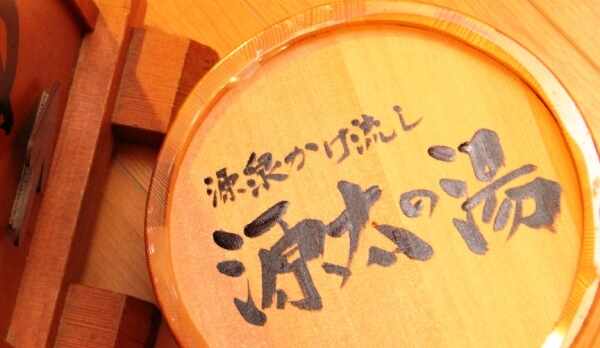 源泉かけ流し
源太の湯